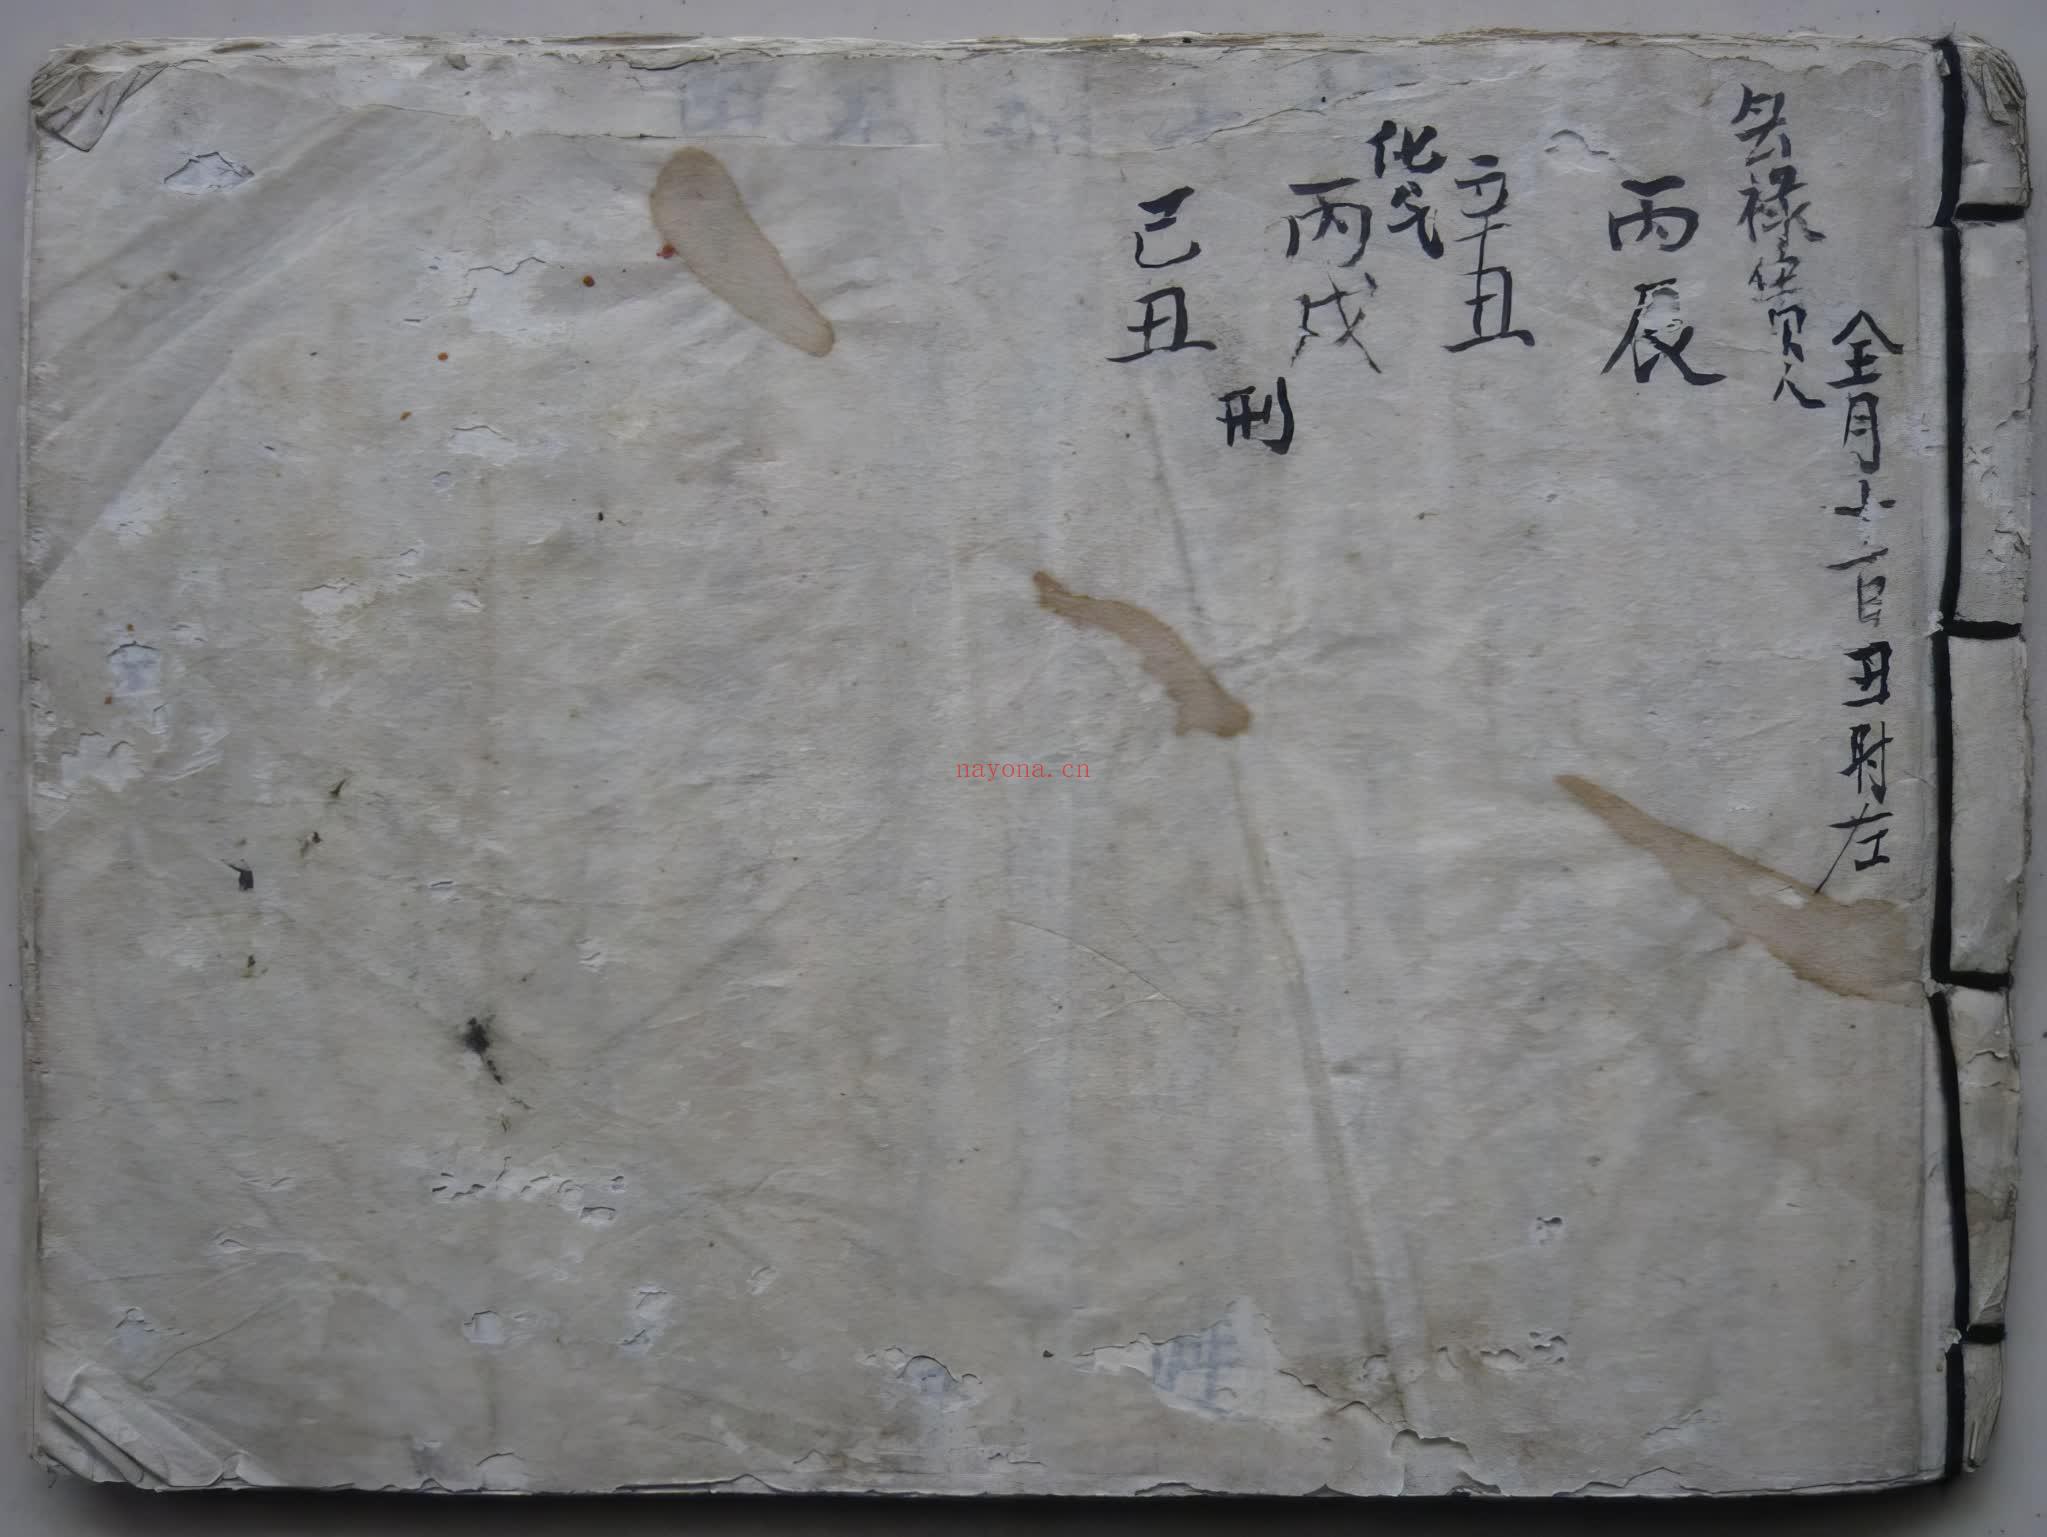 全月十一日丑时左
禄
丙辰
辛丑
化
丙戌
刑
己丑
nayona.cn